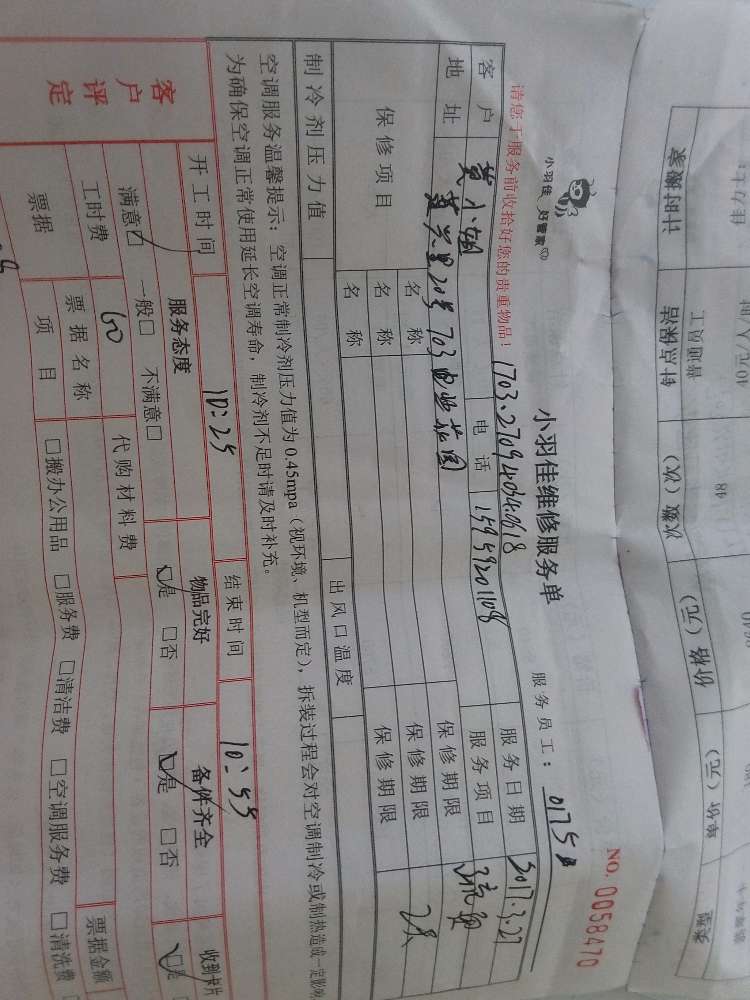 小羽佳 好管家
小羽佳维修服务单
NO. 0058470
请您于服务前收拾好您的贵重物品!
1703.270940340618
服务员工: 0175
客户 黄小姐 电话 15959201108 服务日期 2017.3.27
地址 莲兴里20号703 服务项目
保修项目 名称 保修期限
名称 保修期限
名称 保修期限
制冷剂压力值 出风口温度
空调服务温馨提示: 空调正常制冷剂压力值为0.45mpa (视环境、机型而定), 拆装过程会对空调制冷或制热造成一定影响
为确保空调正常使用延长空调寿命, 制冷剂不足时请及时补充。
客户评定
开工时间 10:25 结束时间 10:55
服务态度 物品完好 备件齐全 收到卡片
满意☑ 一般□ 不满意□ ☑是 □否 ☑是 □否 ☑是
工时费 60 代购材料费
票据 票据名称 票据金额
项目 □搬办公用品 □服务费 □清洁费 □空调服务费 □清洗费
计时搬家 钟点保洁 次数(次) 价格(元) 单价(元)
普通员工
48